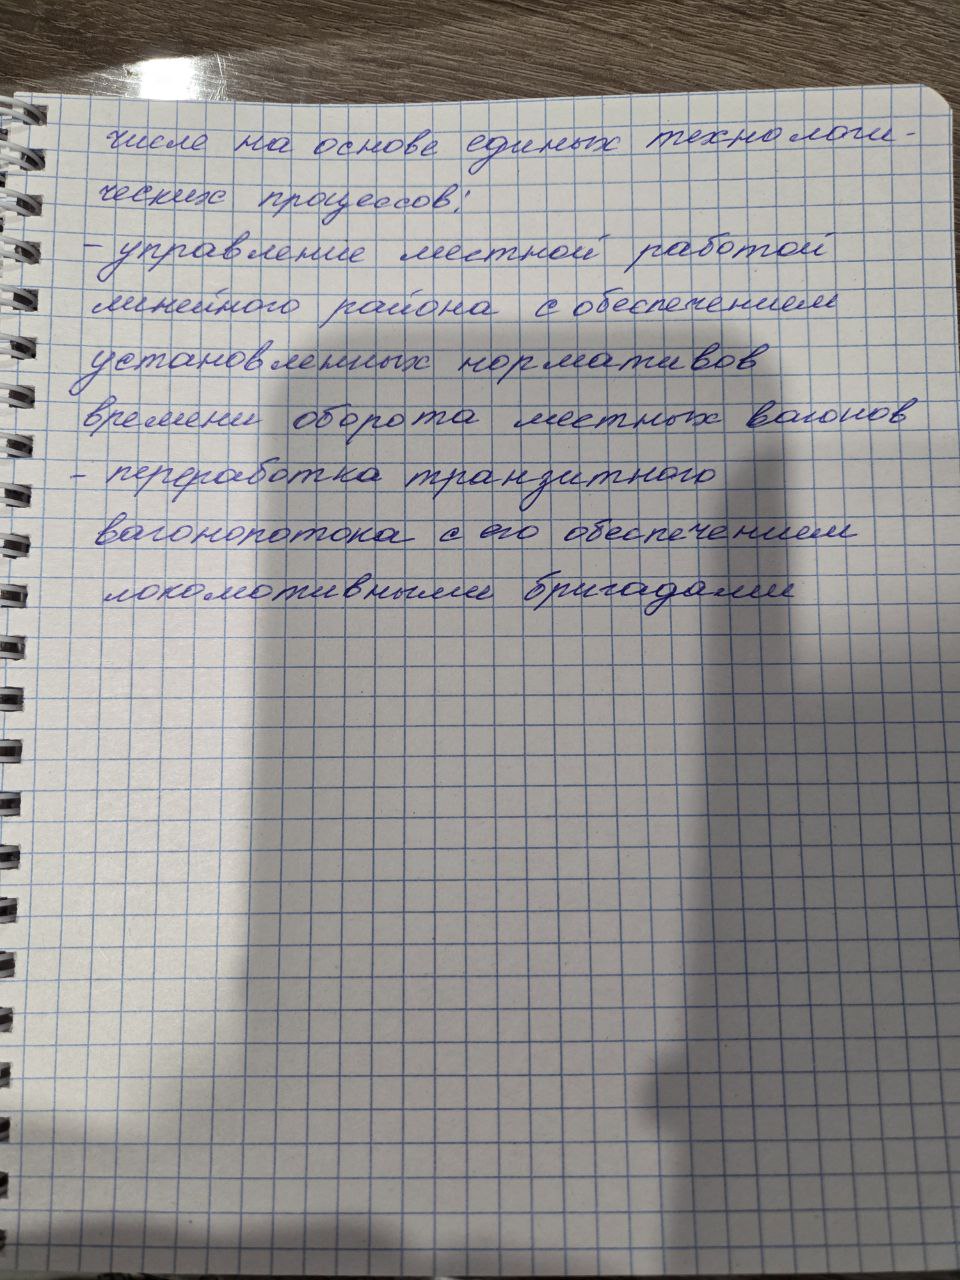 числе на основе единых технологи-
ческих процессов;
- управление местной работой
линейного района с обеспечением
установленных нормативов
времени оборота местных вагонов
- переработка транзитного
вагонопотока с его обеспечением
локомотивными бригадами